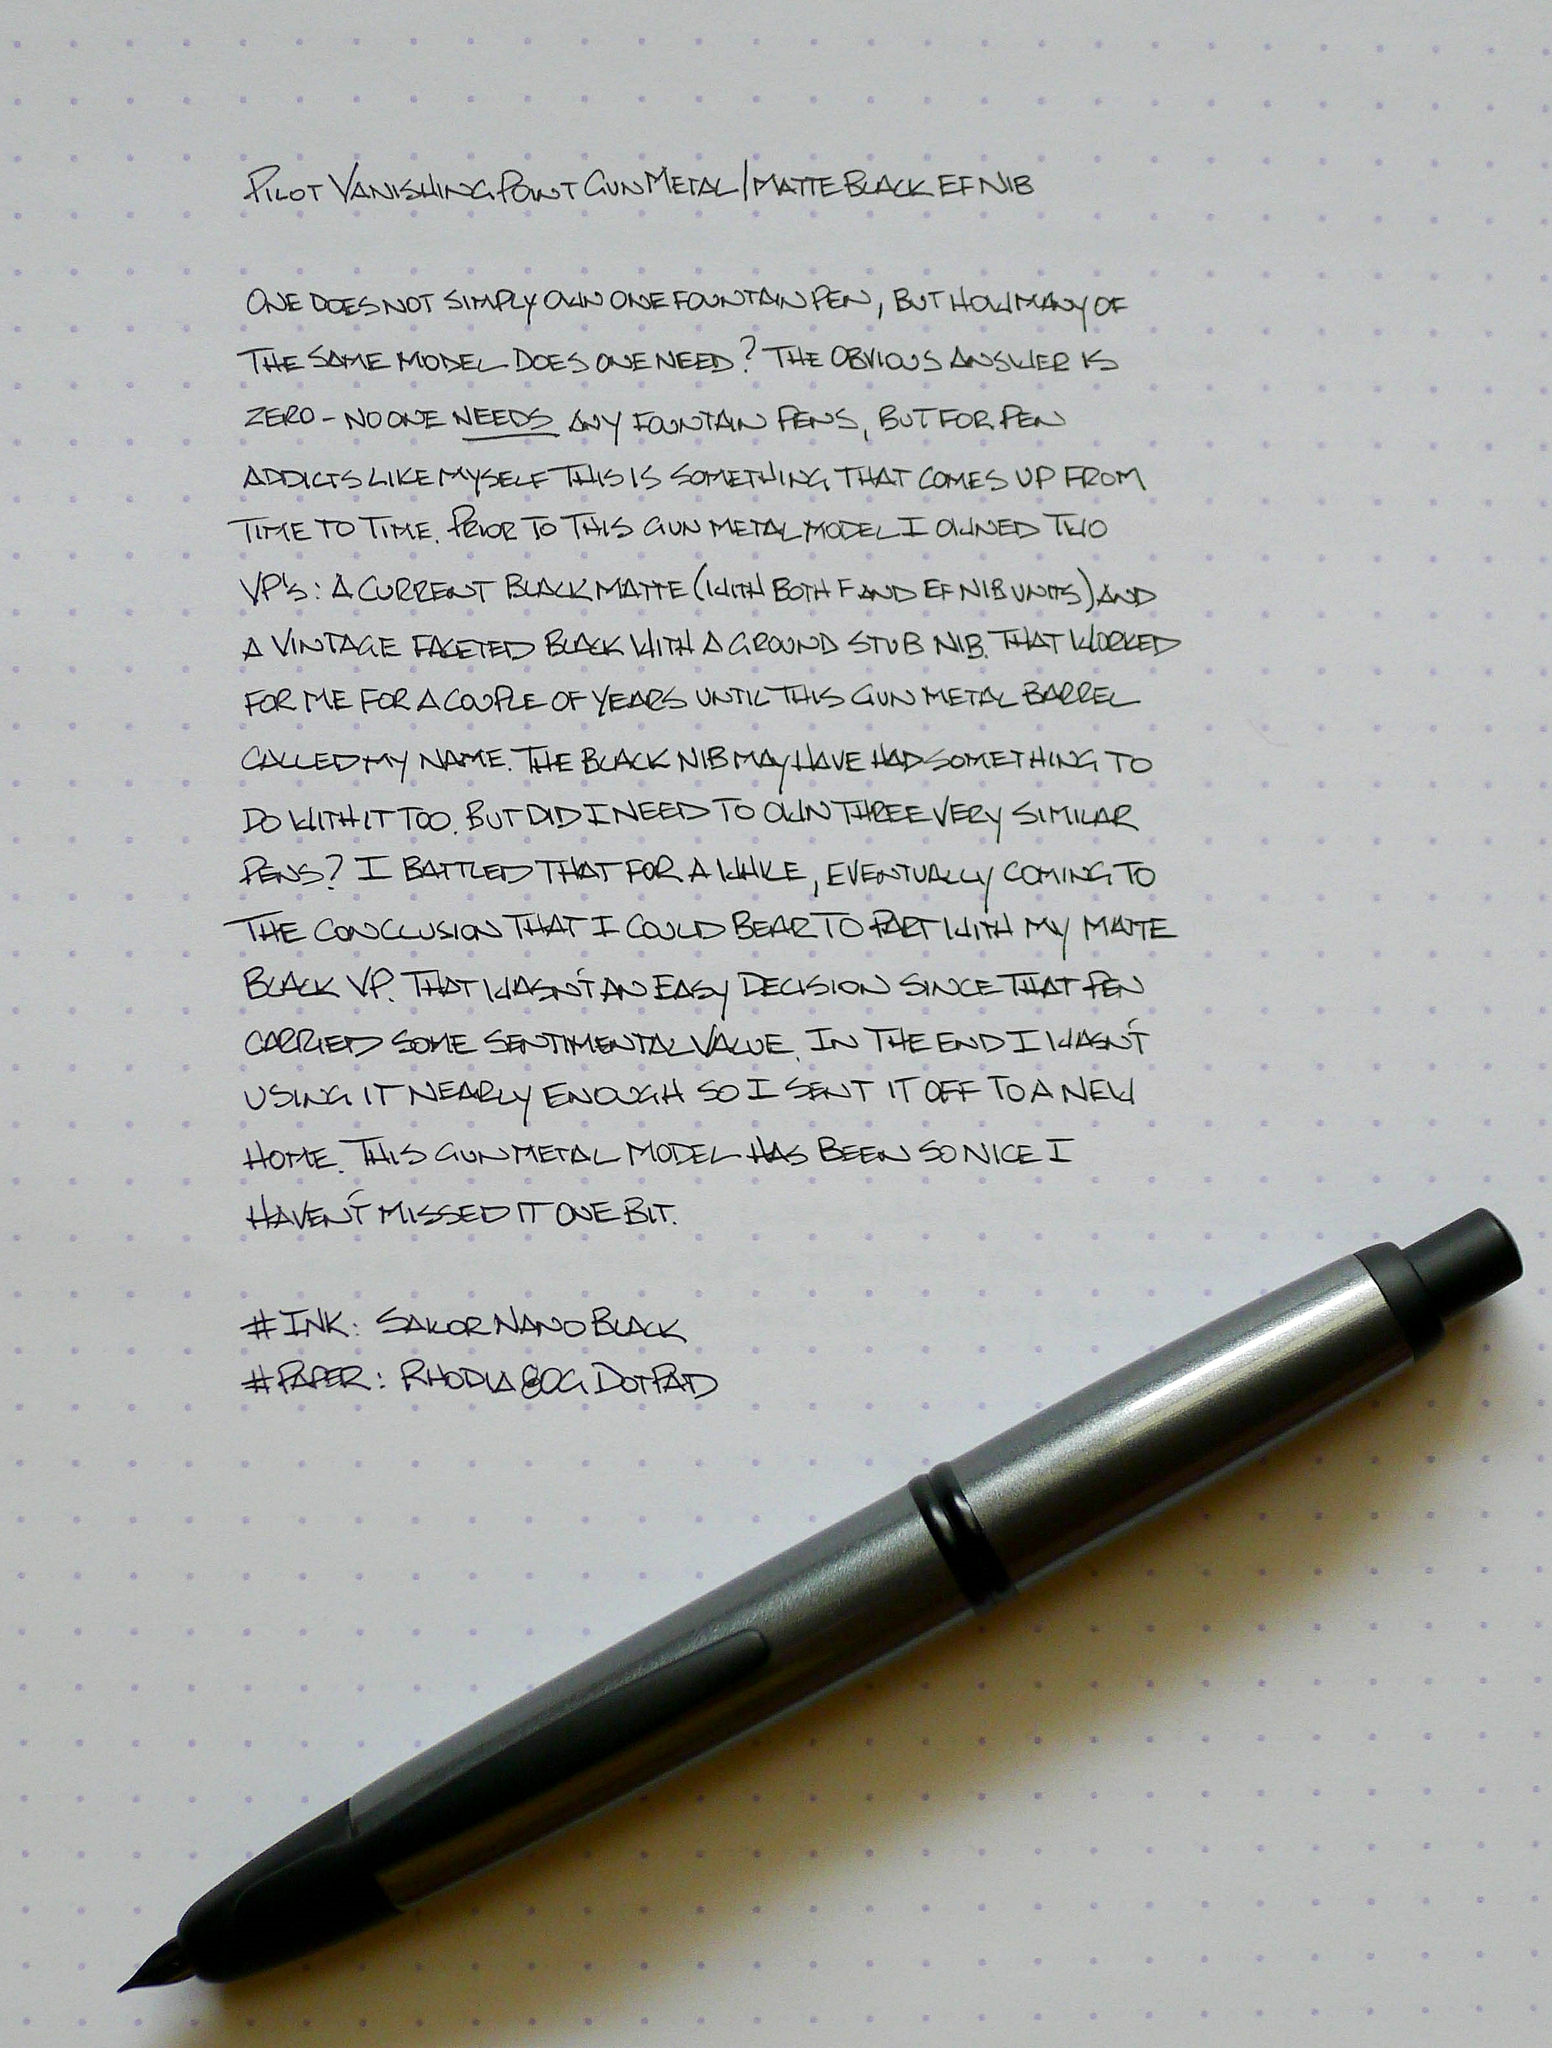 PILOT VANISHING POINT GUN METAL/MATTE BLACK EF NIB
ONE DOES NOT SIMPLY OWN ONE FOUNTAIN PEN, BUT HOW MANY OF
THE SAME MODEL DOES ONE NEED? THE OBVIOUS ANSWER IS
ZERO - NO ONE NEEDS ANY FOUNTAIN PENS, BUT FOR PEN
ADDICTS LIKE MYSELF THIS IS SOMETHING THAT COMES UP FROM
TIME TO TIME. PRIOR TO THIS GUN METAL MODEL I OWNED TWO
VP'S: A CURRENT BLACK MATTE (WITH BOTH F AND EF NIB UNITS) AND
A VINTAGE FACETED BLACK WITH A GROUND STUB NIB. THAT WORKED
FOR ME FOR A COUPLE OF YEARS UNTIL THIS GUN METAL BARREL
CALLED MY NAME. THE BLACK NIB MAY HAVE HAD SOMETHING TO
DO WITH IT TOO. BUT DID I NEED TO OWN THREE VERY SIMILAR
PENS? I BATTLED THAT FOR A WHILE, EVENTUALLY COMING TO
THE CONCLUSION THAT I COULD BEAR TO PART WITH MY MATTE
BLACK VP. THAT WASN'T AN EASY DECISION SINCE THAT PEN
CARRIED SOME SENTIMENTAL VALUE. IN THE END I WASN'T
USING IT NEARLY ENOUGH SO I SENT IT OFF TO A NEW
HOME. THIS GUN METAL MODEL HAS BEEN SO NICE I
HAVEN'T MISSED IT ONE BIT.
#INK: SAILOR NANO BLACK
#PAPER: RHODIA 80G DOTPAD